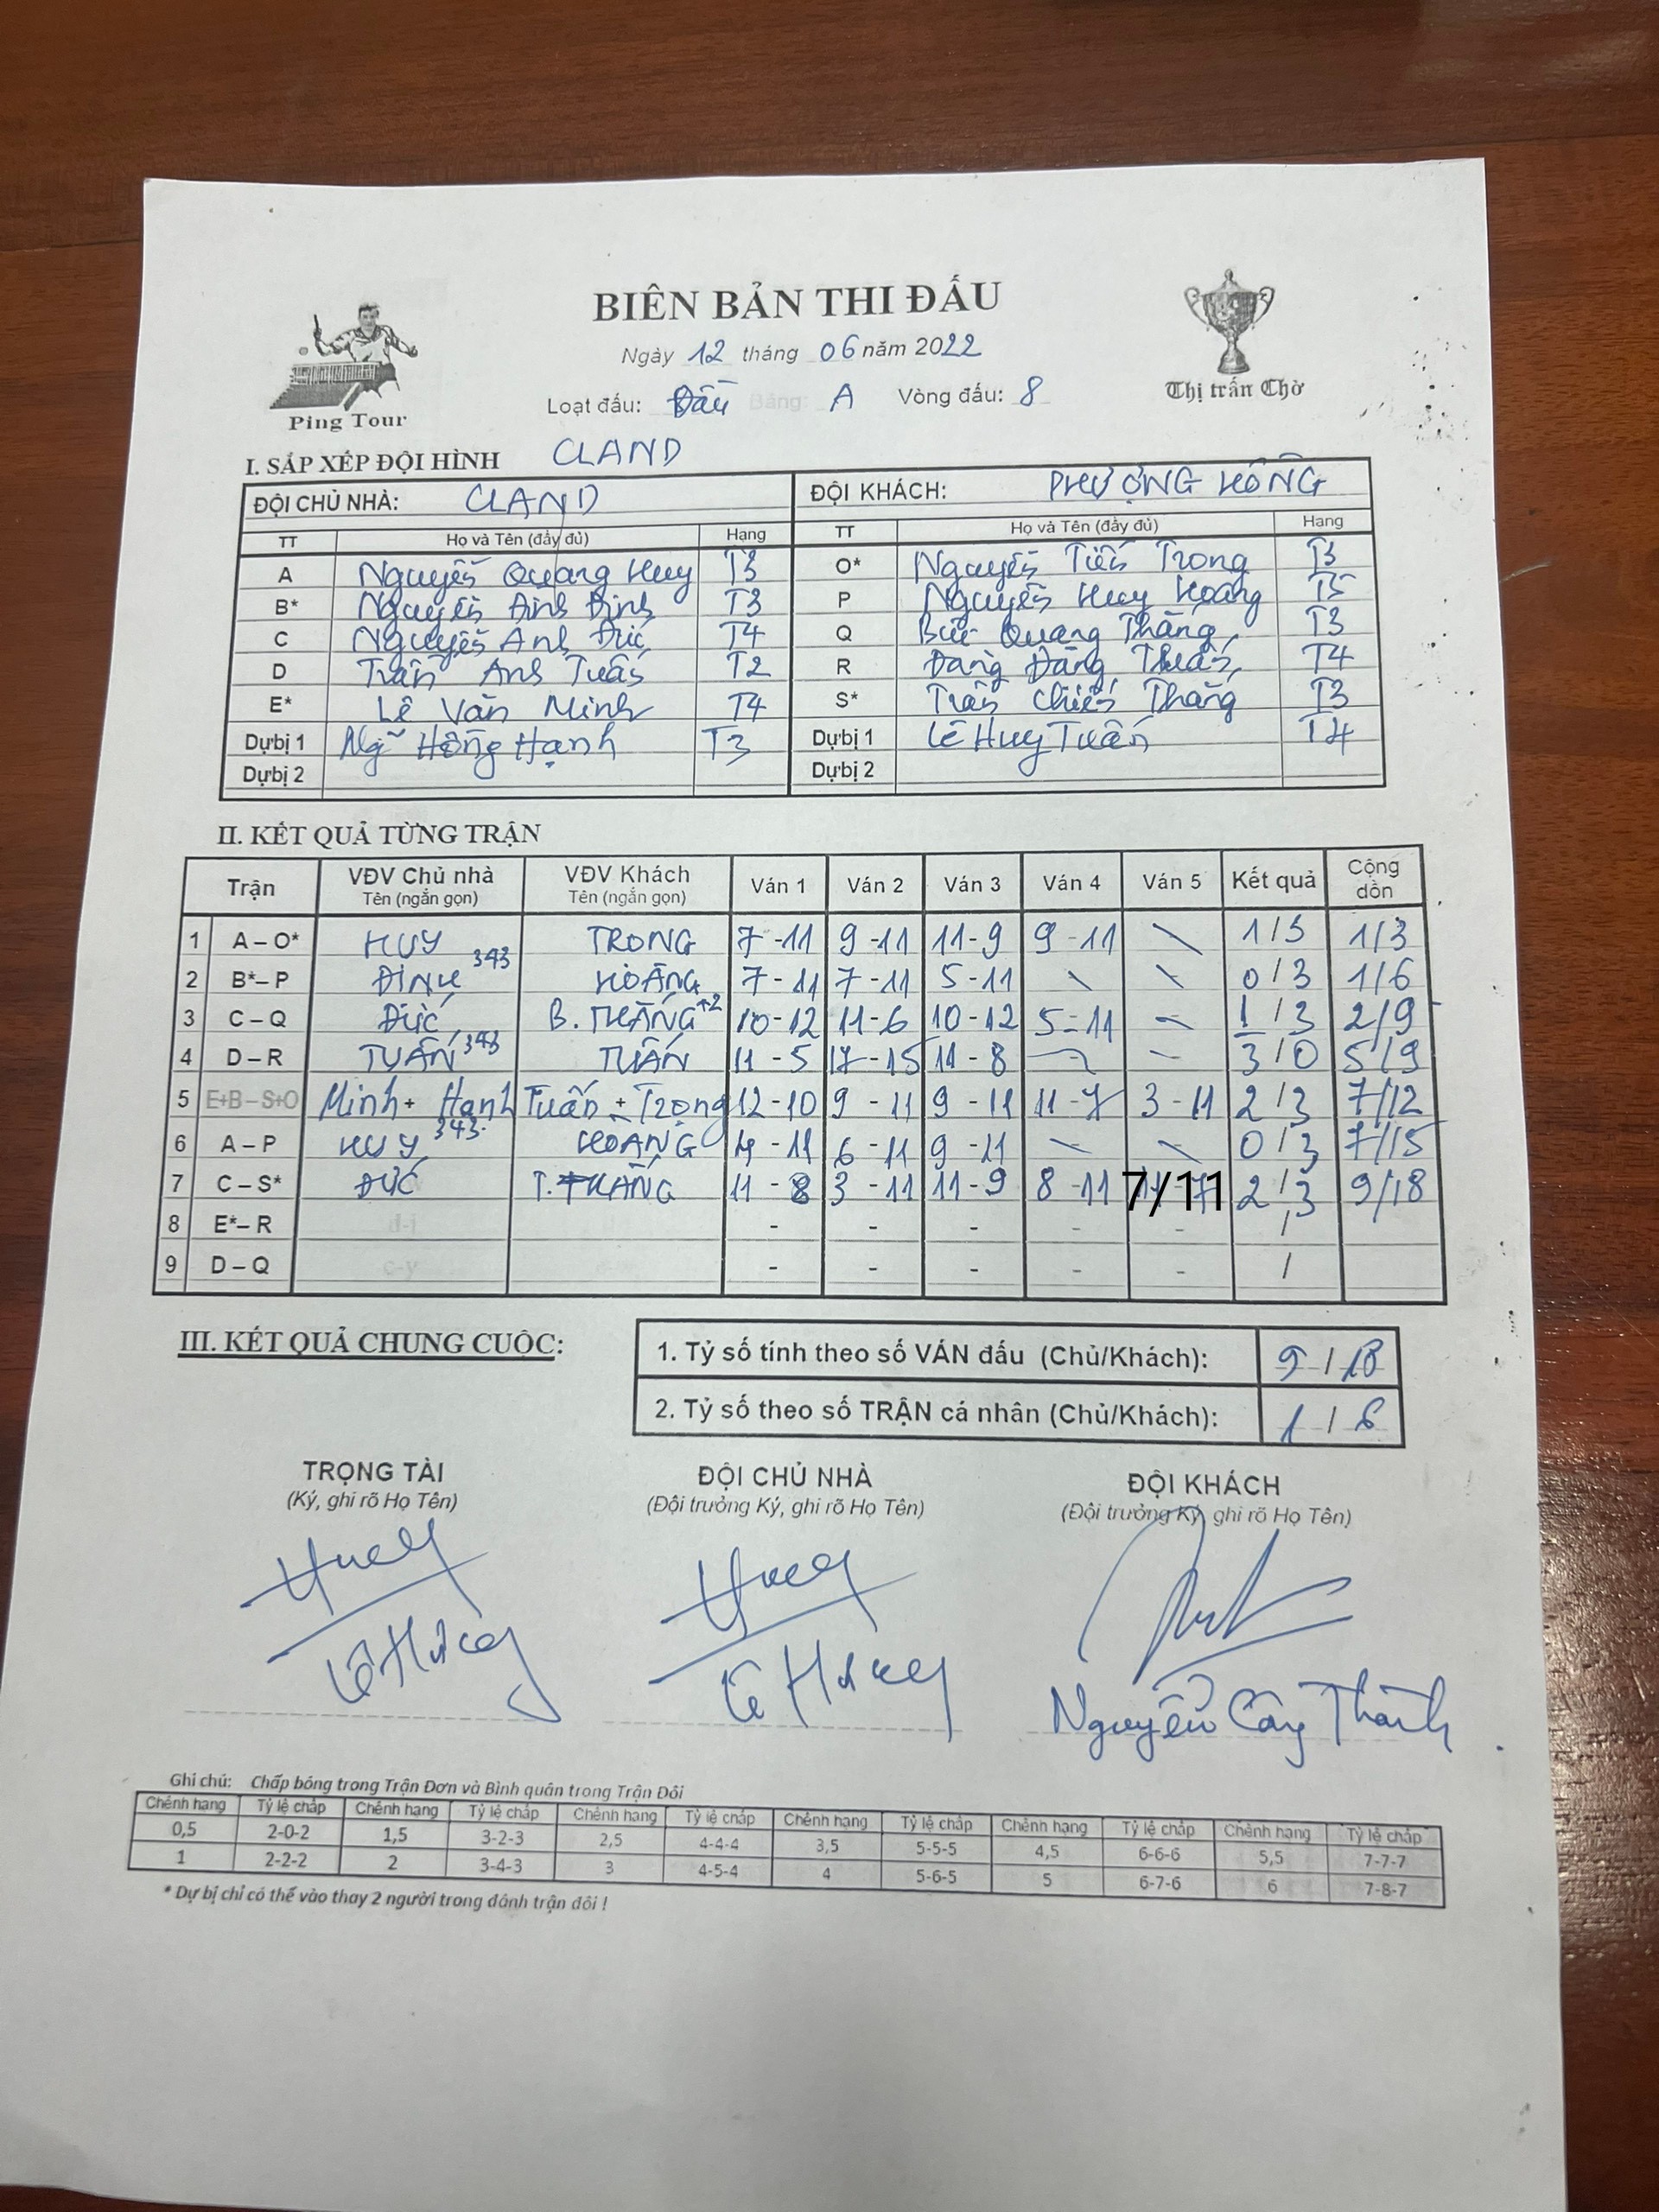 BIÊN BẢN THI ĐẤU
Ngày 12 tháng 06 năm 2022
Loạt đấu: Đấu Bảng: A Vòng đấu: 8
Ping Tour
Thị trấn Chờ
I. SẮP XẾP ĐỘI HÌNH CLAND
ĐỘI CHỦ NHÀ: CLAND ĐỘI KHÁCH: PHƯỢNG HỒNG
TT Họ và Tên (đầy đủ) Hạng TT Họ và Tên (đầy đủ) Hạng
A Nguyễn Quang Huy T3 O* Nguyễn Tiến Trọng T3
B* Nguyễn Đình Định T3 P Nguyễn Huy Hoàng T5
C Nguyễn Anh Đức T4 Q Bùi Quang Thắng T3
D Trần Anh Tuấn T2 R Đặng Đăng Tuấn T4
E* Lê Văn Minh T4 S* Trần Chiến Thắng T3
Dự bị 1 Ngỹ Hồng Hạnh T3 Dự bị 1 Lê Huy Tuấn T4
Dự bị 2 Dự bị 2
II. KẾT QUẢ TỪNG TRẬN
Trận VĐV Chủ nhà Tên (ngắn gọn) VĐV Khách Tên (ngắn gọn) Ván 1 Ván 2 Ván 3 Ván 4 Ván 5 Kết quả Cộng dồn
1 A – O* HUY TRỌNG 7 - 11 9 - 11 11 - 9 9 - 11 \ 1 / 3 1/3
2 B* – P ĐỊNH 343 HOÀNG 7 - 11 7 - 11 5 - 11 \ \ 0 / 3 1/6
3 C – Q ĐỨC B. THẮNG +2 10 - 12 11 - 6 10 - 12 5 - 11 - 1 / 3 2/9
4 D – R TUẤN 343 TUẤN 11 - 5 17 - 15 11 - 8 - - 3 / 0 5/9
5 E+B – S+O Minh + Hạnh Tuấn + Trọng 12 - 10 9 - 11 9 - 11 11 - 7 3 - 11 2 / 3 7/12
6 A – P HUY 343 HOÀNG 4 - 11 6 - 11 9 - 11 \ \ 0 / 3 7/15
7 C – S* ĐỨC T. THẮNG 11 - 8 3 - 11 11 - 9 8 - 11 7/11 2 / 3 9/18
8 E* – R d-i - - - - - /
9 D – Q c-y - - - - - /
III. KẾT QUẢ CHUNG CUỘC:
1. Tỷ số tính theo số VÁN đấu (Chủ/Khách): 9 / 18
2. Tỷ số theo số TRẬN cá nhân (Chủ/Khách): 1 / 6
TRỌNG TÀI ĐỘI CHỦ NHÀ ĐỘI KHÁCH
(Ký, ghi rõ Họ Tên) (Đội trưởng Ký, ghi rõ Họ Tên) (Đội trưởng Ký, ghi rõ Họ Tên)
Nguyễn Công Thành
Ghi chú: Chấp bóng trong Trận Đơn và Bình quân trong Trận Đôi
Chênh hạng Tỷ lệ chấp Chênh hạng Tỷ lệ chấp Chênh hạng Tỷ lệ chấp Chênh hạng Tỷ lệ chấp Chênh hạng Tỷ lệ chấp Chênh hạng Tỷ lệ chấp
0,5 2-0-2 1,5 3-2-3 2,5 4-4-4 3,5 5-5-5 4,5 6-6-6 5,5 7-7-7
1 2-2-2 2 3-4-3 3 4-5-4 4 5-6-5 5 6-7-6 6 7-8-7
* Dự bị chỉ có thể vào thay 2 người trong đánh trận đôi !